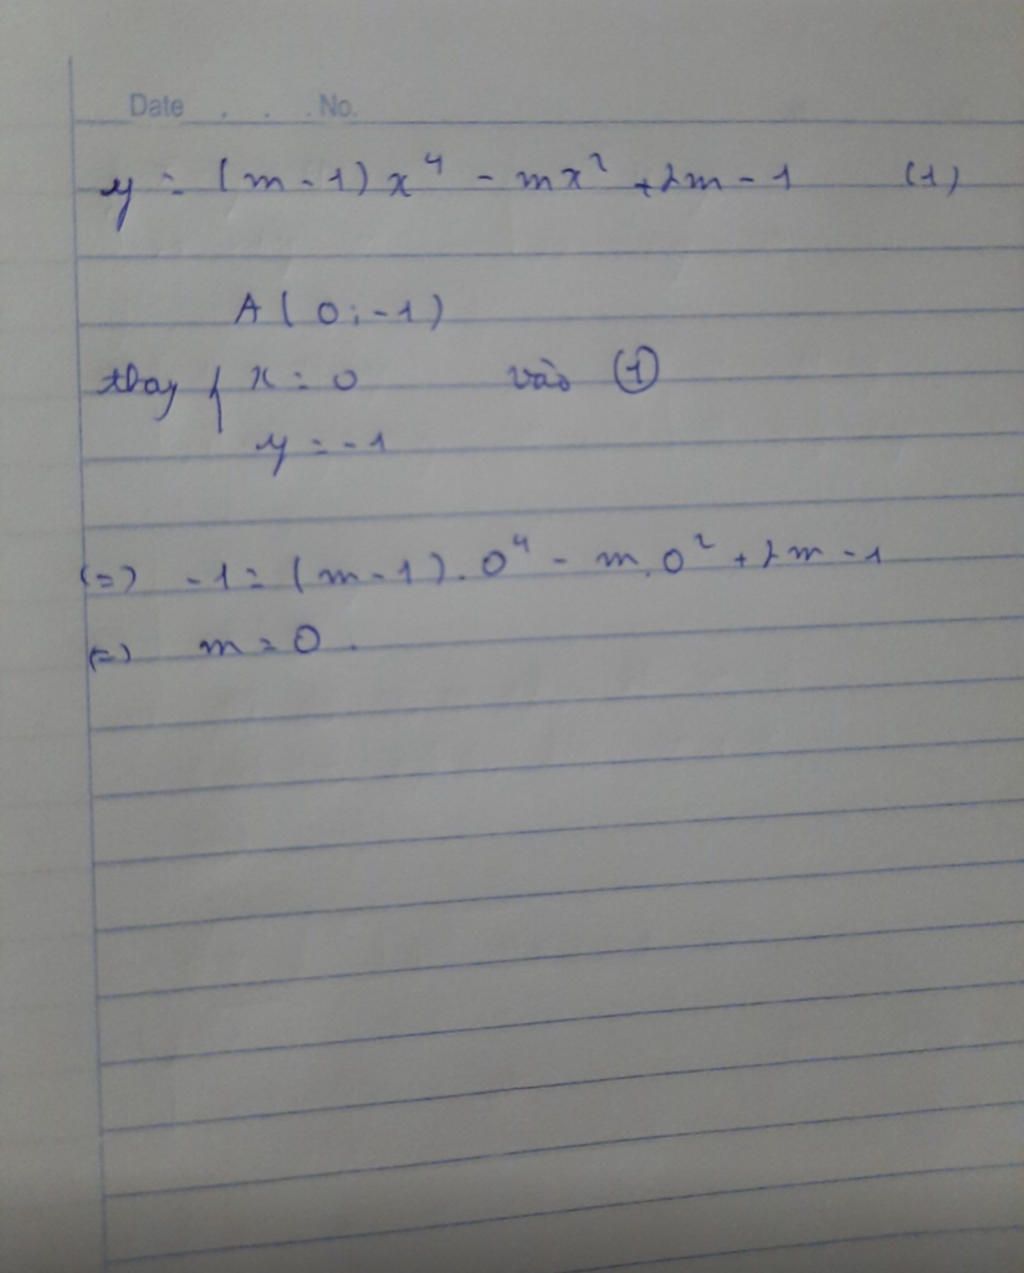 Date . . . No.
y = (m - 1)x⁴ - mx² + 2m - 1 (1)
A(0; -1)
thay { x = 0 vào ①
y = -1
(=) -1 = (m - 1).0⁴ - m.0² + 2m - 1
(=) m = 0.